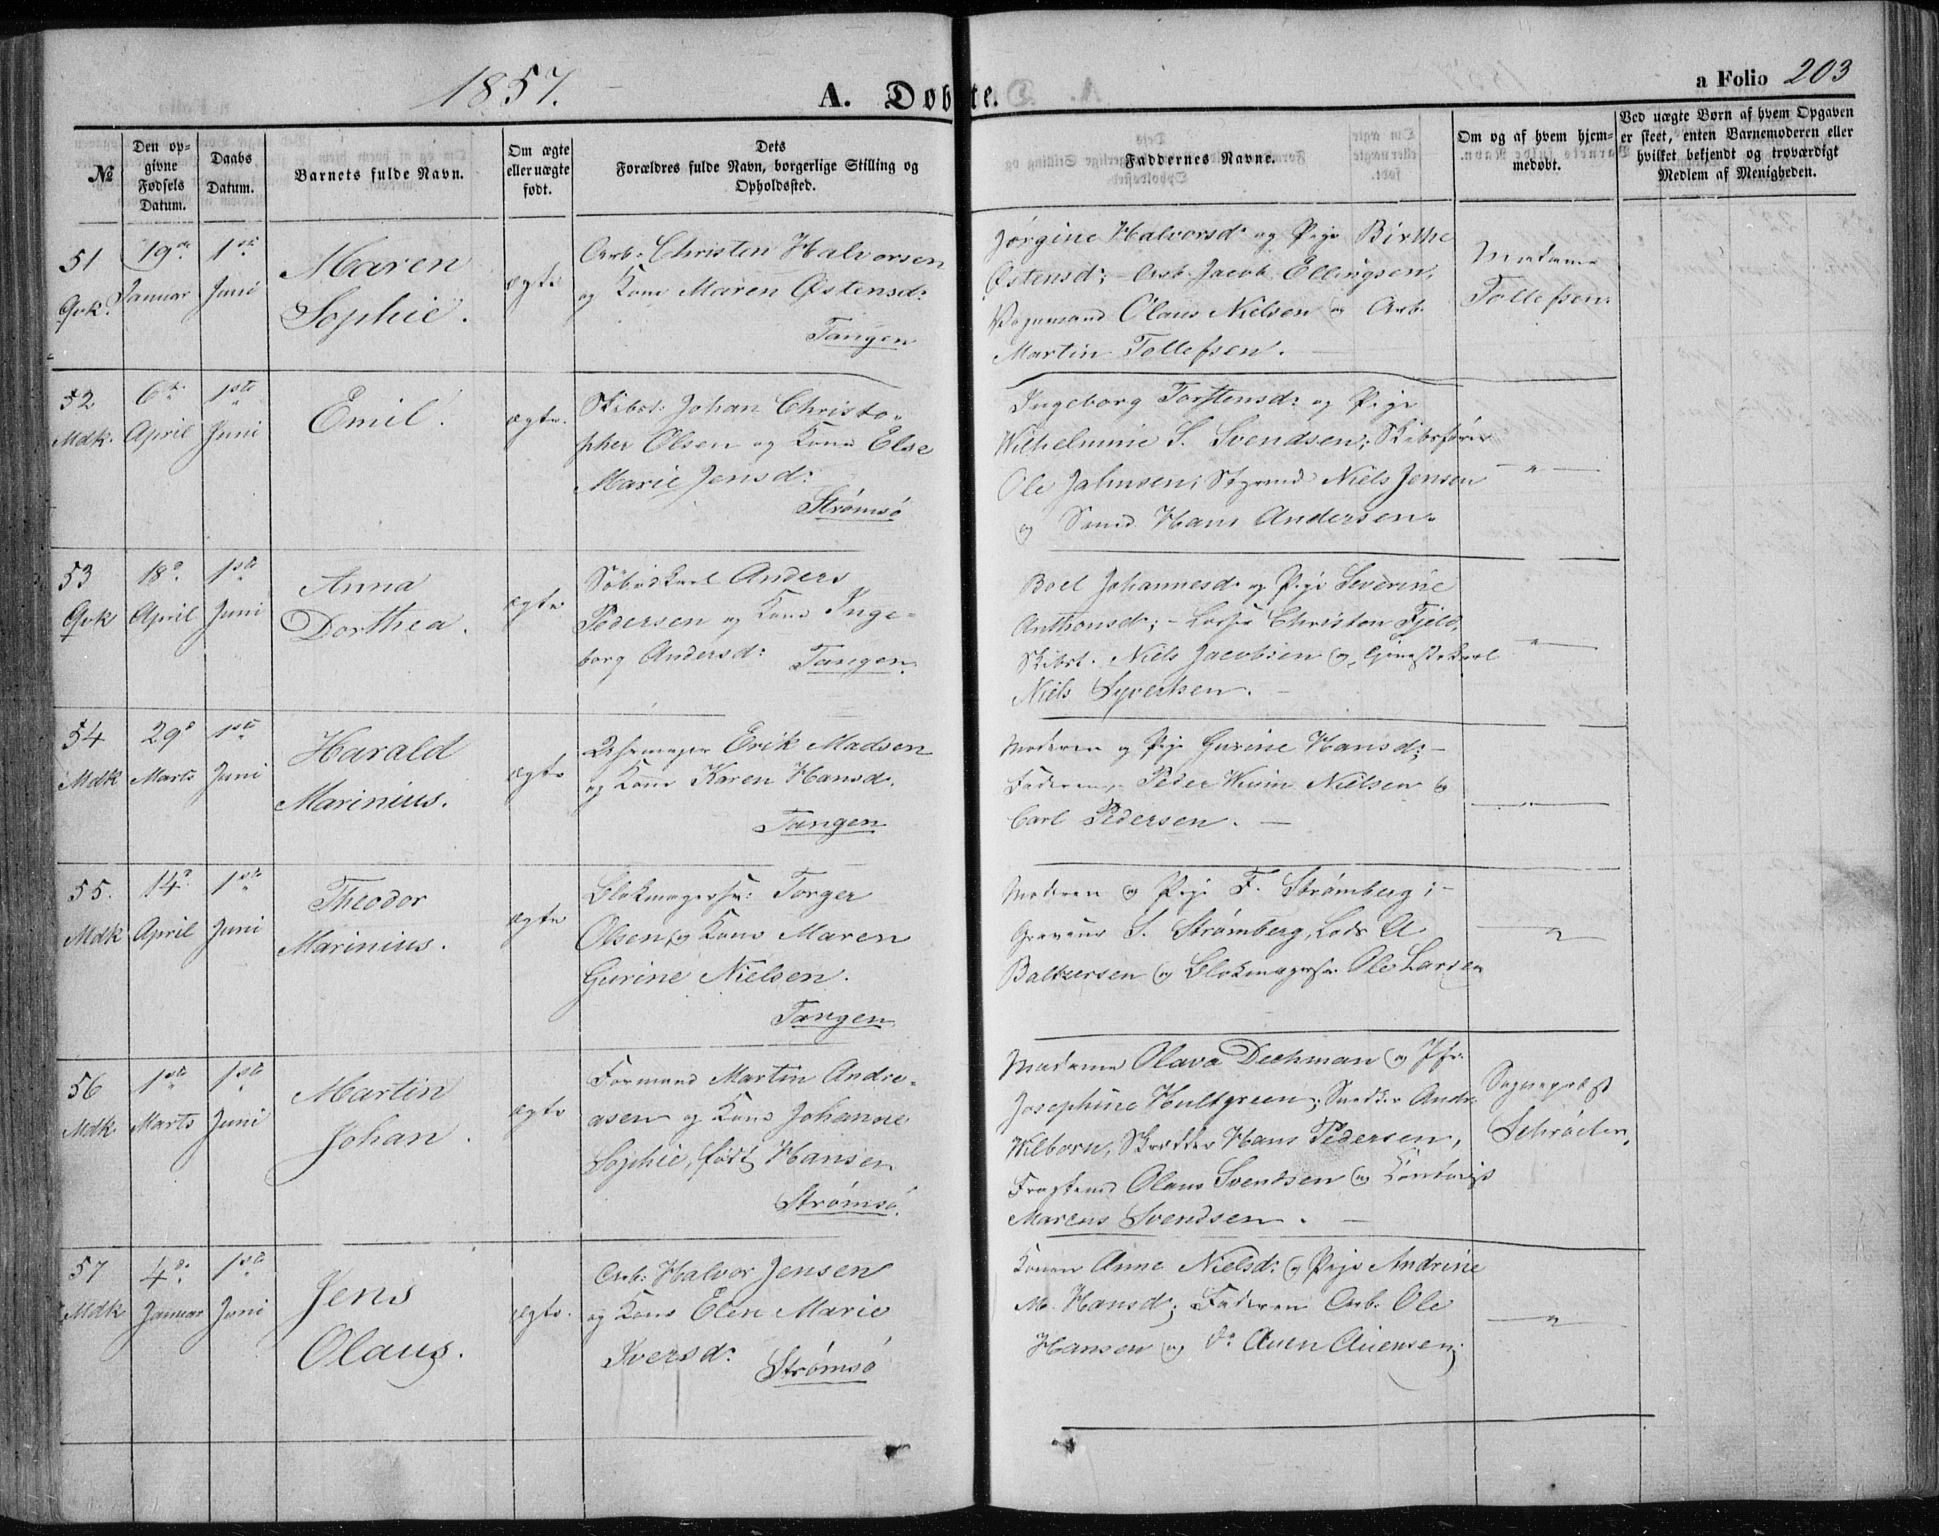 1857.
A. Døbte.
a Folio 203
№
Den opgivne Fødsels Datum.
Daabs Datum.
Barnets fulde Navn.
Om ægte eller uægte født.
Dets Forældres fulde Navn, borgerlige Stilling og Opholdssted.
Faddernes Navne.
Om og af hvem hjemmedøbt.
Ved uægte Børn af hvem Opgaven er skeet, enten Barnemoderen eller hvilket bekjendt og troværdigt Medlem af Menigheden.
51
Qvk.
19de
Januar
1ste
Juni
Maren
Sophie.
ægte
Arb: Christen Halvorsen
og Kone Maren Østensd:
Tangen
Jørgine Halvorsd: og Pige Birthe
Østensd: - Arb. Jacob Ellingsen,
Olaus Nielsen og Arb.
Martin Tollefsen.
Madame
Tollefsen.
52
Mdk.
6te
April
1ste
Juni
Emil.
ægte.
Skibst: Johan Christo-
pher Olsen og Kone Else
Marie Jensd:
Strømsø
Ingeborg Torstensd: og Pige
Wilhelmine S. Svendsen; Skibsfører
Ole Jahnsen; Styrmd Niels Jensen
og Sømd. Hans Andersen.
— " —
53
Qvk
18de
April
1ste
Juni
Anna
Dorthea.
ægte
Anders
Pedersen og Kone Inge-
borg Andersd: Tangen.
Boel Johannesd: og Pige Severine
Anthonsd; - Christen Fjeld,
Skibst. Niels Jacobsen og
Niels Syvertsen.
— " —
54
Mdk
29de
Marts
1ste
Juni
Harald
Marinius.
ægte
Erik Madsen
og Kone Karen Hansd.
Tangen
Moderen og Pige Gurine Hansd; -
Faderen, Peder Nielsen og
Carl Pedersen. —
— " —
55.
Mdk
14de
April
1ste
Juni
Theodor
Marinius.
ægte
Blokmagersv: Torger
Olsen og Kone Maren
Gurine Nielsen.
Tangen
Moderen og Pige F. Strømberg; -
Graveur S. Strømberg, Lods A
Baltzersen og Blokmagersv. Ole Larsen
— " —
56
Mdk.
1ste
Marts
1ste
Juni
Martin
Johan.
ægte
Formand Martin Andre-
asen og Kone Johanne
Sophie, født Hansen
Strømsø.
Madame Olava Dechman og Jfr.
Josephine Hultgreen; Snedker Andr.
Wilborn, Skrædder Hans Pedersen,
Olaus Svendsen og Kontorist
Marcus Svendsen. —
Sognepræst
Schrøeter.
57
Mdk
4de
Januar
1ste
Juni
Jens
Olaus.
ægte.
Arb: Halvor Jensen
og Kone Elen Marie
Iversd: Strømsø
Konen Anne Nielsd: og Pige Andrine
M. Hansd; Faderen Arb. Ole
Hansen og do Aven Avensen.
— " —